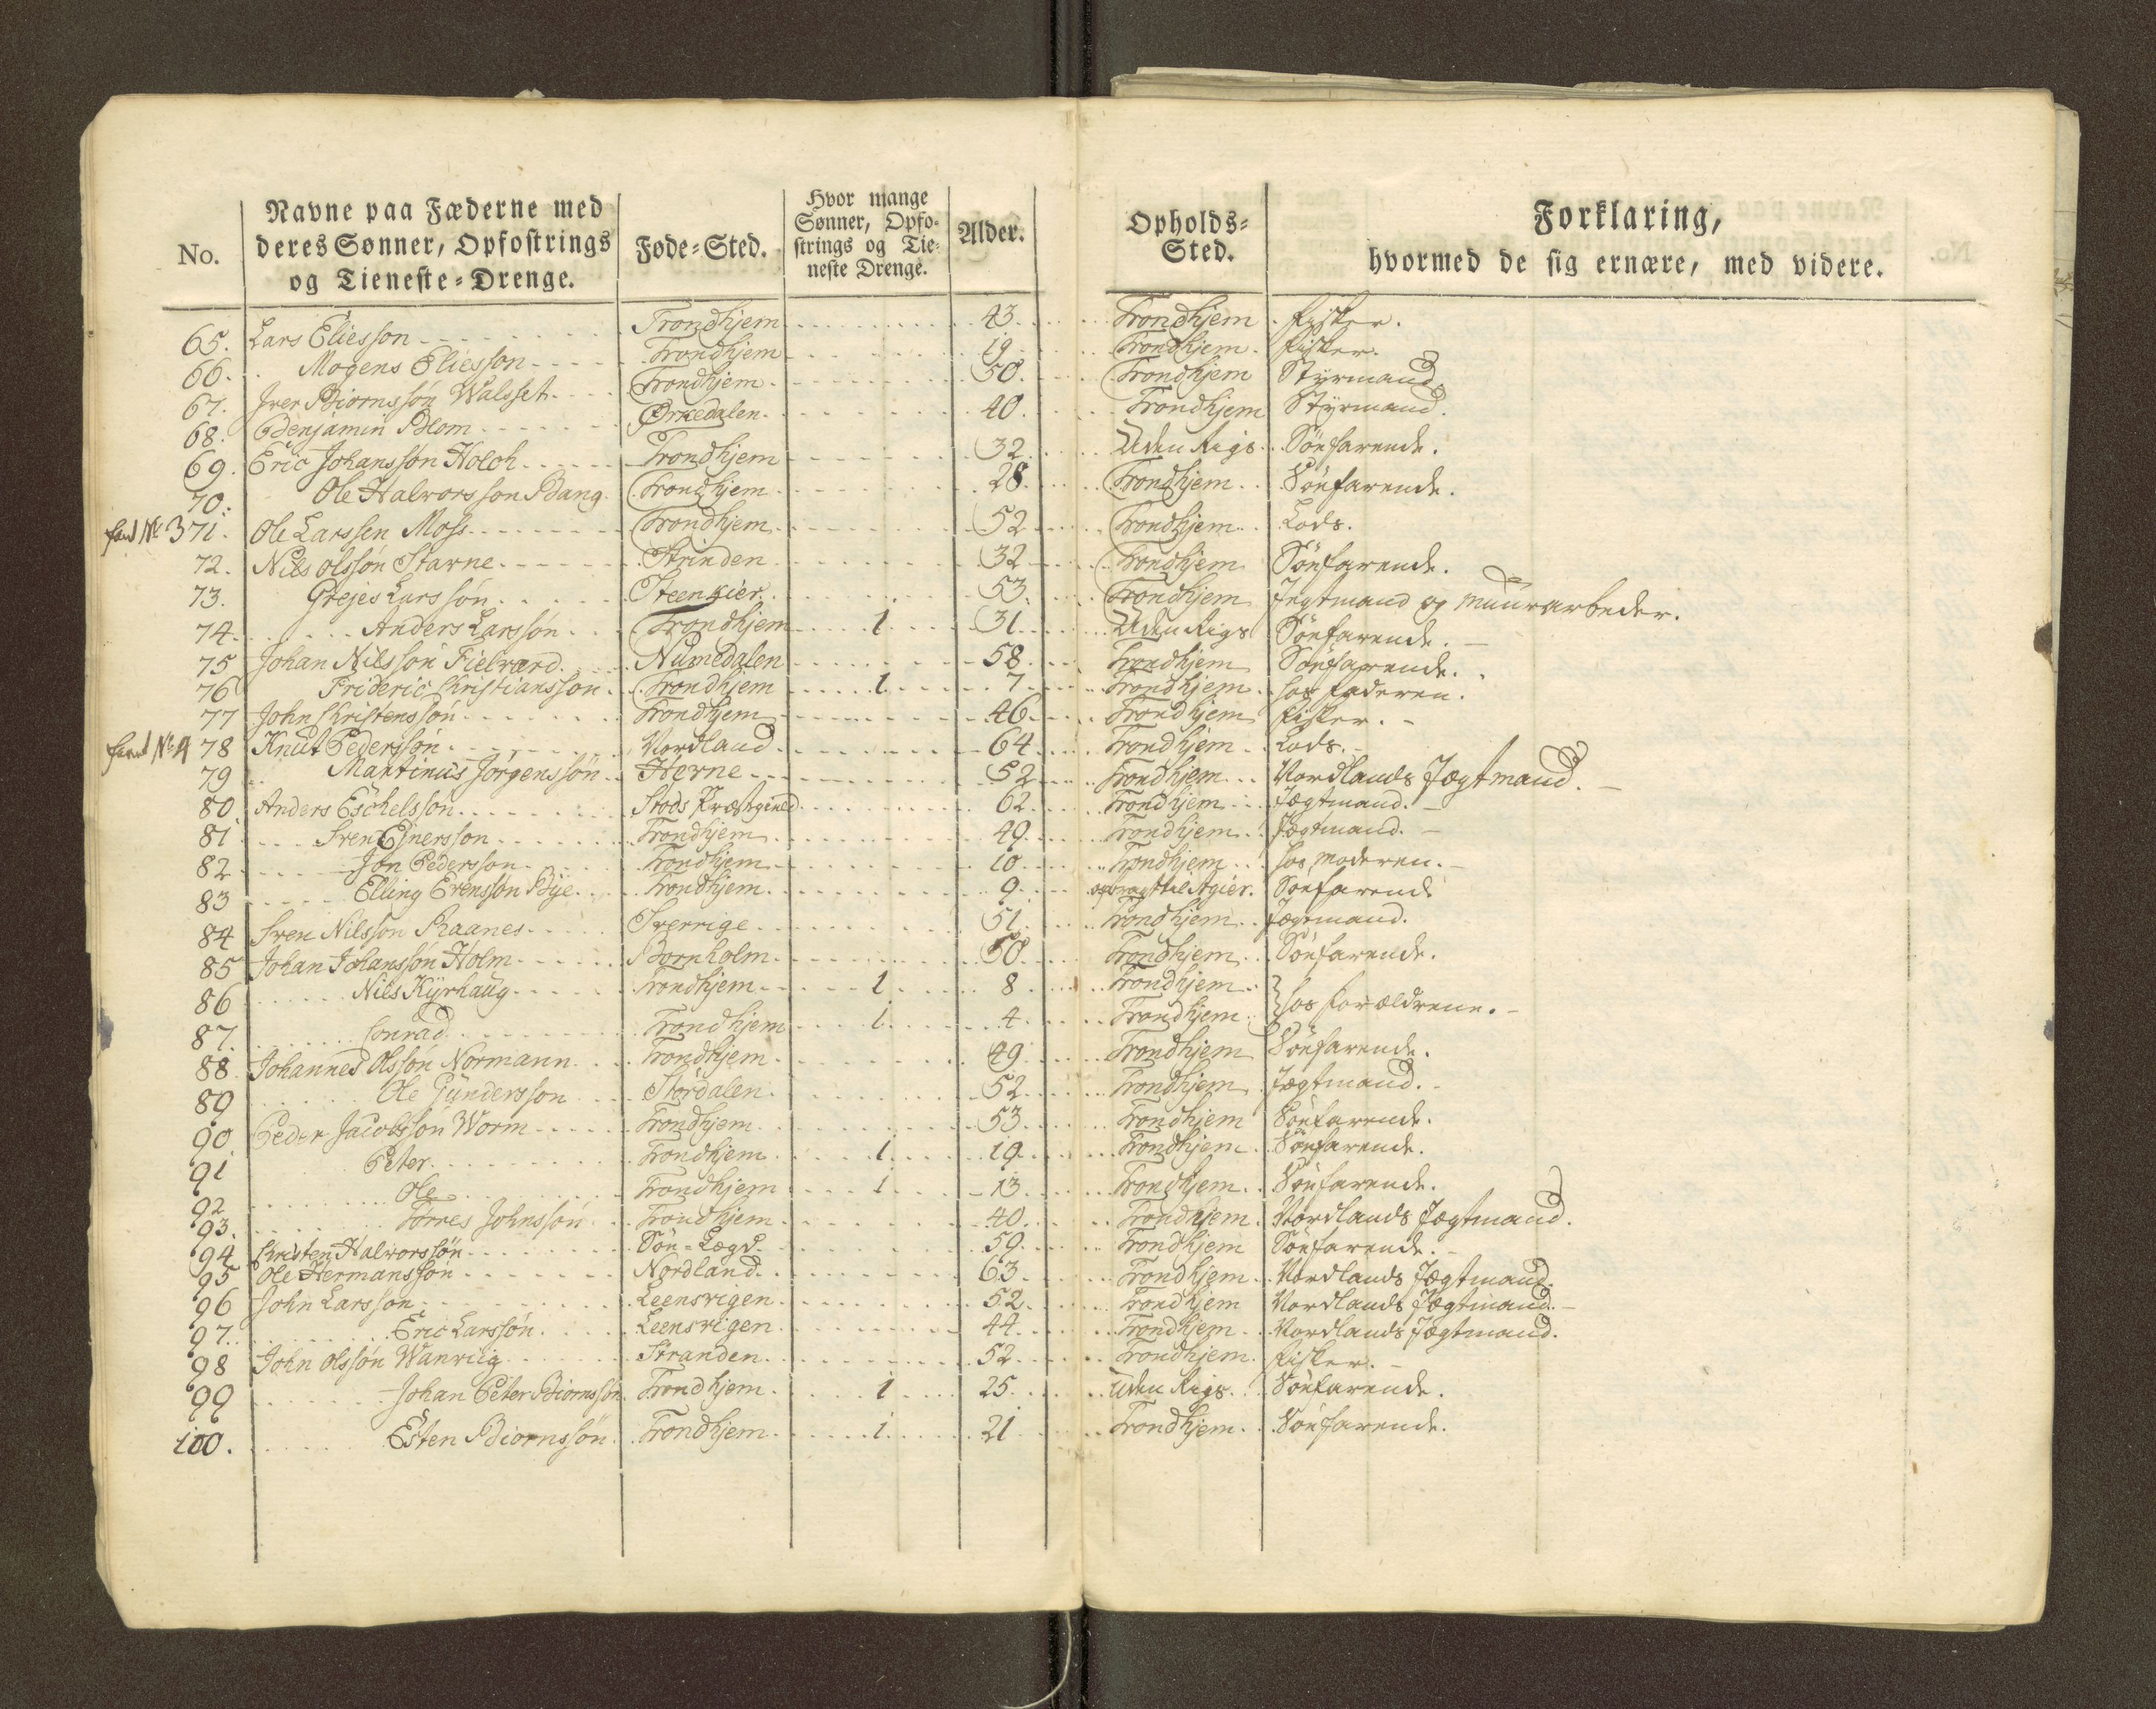 No. Navne paa Fæderne med deres Sønner, Opfostrings og Tieneste-Drenge. Føde-Sted. Hvor mange Sønner, Opfostrings og Tieneste Drenge. Alder. Opholds-Sted. Forklaring, hvormed de sig ernære, med videre.
65. Lars Eliesson Trondhjem 43. Trondhjem Fisker.
66. Mogens Eliesson Trondhjem 19 Trondhjem Fisker.
67. Iver Biornssøn Walsset Trondhjem 50. Trondhjem Styrmand.
68. Benjamin Blom Ørkedalen 40. Trondhjem Styrmand.
69. Eric Johanssøn Holch Trondhjem 32 Uden Rigs Søefarende.
70. Ole Halvorsson Bang Trondhjem 28. Trondhjem Søefarende.
371. Ole Larssen Moss Trondhjem 52 Trondhjem Lods.
72. Nils Olssøn Starne Strinden 32 Trondhjem Søefarende.
73. Grejes Larssøn Steenkier 53. Trondhjem Jegtmand og Muurarbeder.
74. Anders Larssøn Trondhjem 1 31. Uden Rigs Søefarende.
75 Johan Nilssøn Fielværd Numedalen 58. Trondhjem Søefarende.
76 Frideric Christianssøn Trondhjem 1 7 Trondhjem hos Faderen.
77 John Christenssøn Trondhjem 46. Trondhjem Fisker.
78 Knut Pederssøn Nordland 64 Trondhjem Lods.
79 Martinus Jørgenssøn Herne 52 Trondhjem Nordlands Jægtmand.
80. Anders Eschelssøn Stods Præstgield 62. Trondhjem Jægtmand.
81 Sven Ejnersson Trondhjem 49 Trondhjem Jægtmand.
82 Jon Pedersson Trondhjem 10 Trondhjem hos Moderen.
83 Elling Evenssøn Bye Trondhjem 9. Søefarende
84 Sven Nilsson Raanes Sverrige 51. Trondhjem Jægtmand.
85 Johan Johanssøn Holm Bornholm 50. Trondhjem Søefarende.
86 Nils Kyrhaug Trondhjem 1 8 Trondhjem } hos Forældrene.
87. Conrad Trondhjem 1 4 Trondhjem
88 Johannes Olssøn Normann Trondhjem 49 Trondhjem Søefarende.
89 Ole Gundersson Størdalen 52 Trondhjem Jægtmand.
90 Peder Jacobssøn Worm Trondhjem 53 Trondhjem Søefarende.
91 Peter Trondhjem 1 19 Trondhjem Søefarende.
92 Ole Trondhjem 1 13 Trondhjem Søefarende.
93. Torres Johnssøn Trondhjem 40. Trondhjem Nordlands Jægtmand.
94 Christen Halvorssøn Søe-Lægd 59. Trondhjem Søefarende.
95 Ole Hermanssøn Nordland 63 Trondhjem Nordlands Jægtmand.
96 John Larsson Leensvigen 52 Trondhjem Nordlands Jægtmand.
97. Eric Larssøn Leensvigen 44 Trondhjem Nordlands Jægtmand.
98 John Olssøn Wanviig Stranden 52 Trondhjem Fisker.
99 Johan Peter Biornssøn Trondhjem 1 25. Uden Rigs. Søefarende.
100. Esten Biornssøn Trondhjem 1 21 Trondhjem Søefarende.